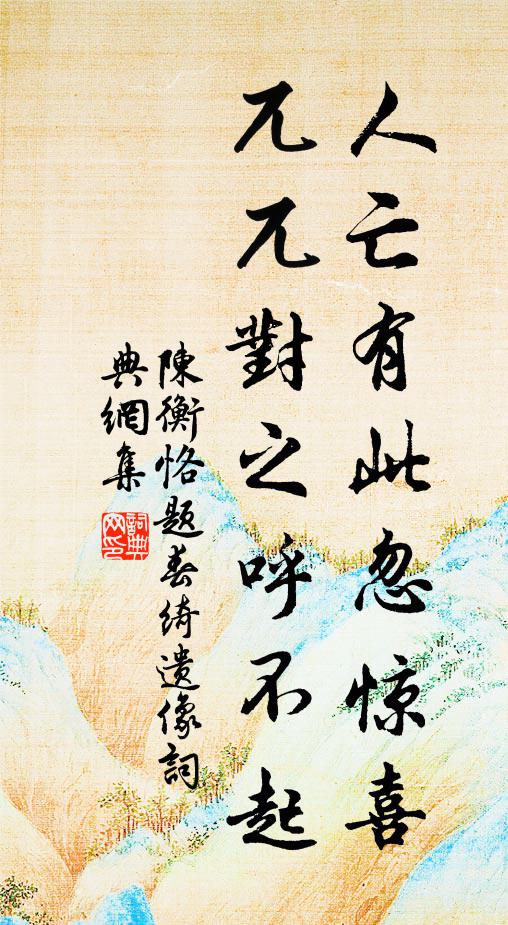 人亡有此忽惊喜
兀兀對之呼不起
陳衡恪题春绮遺像詞
典網集
詞典
网印